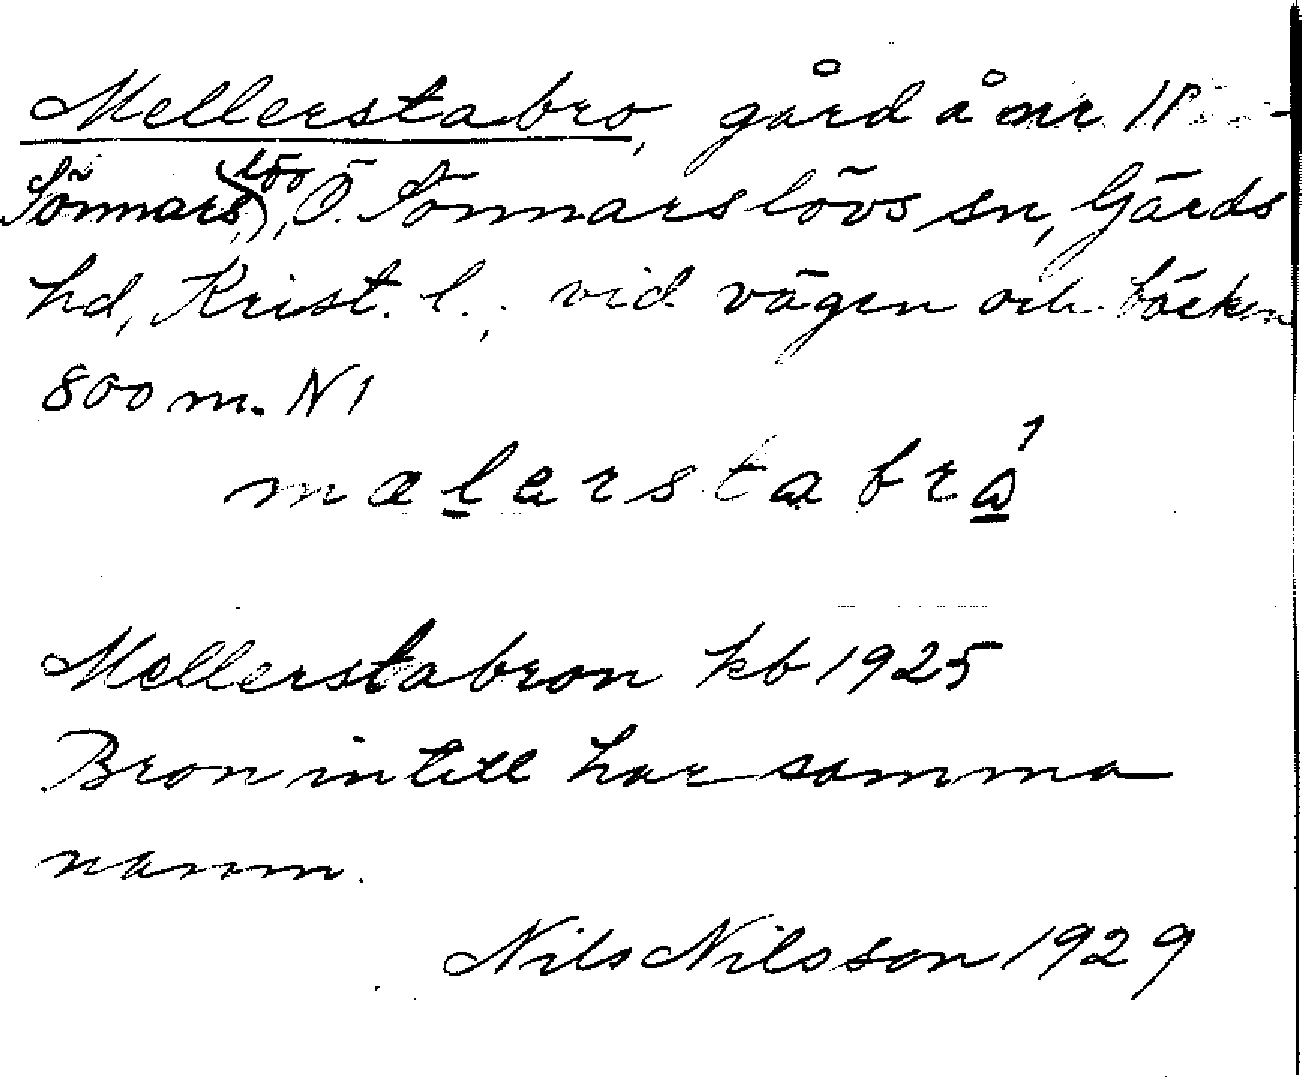 Mellerstabro, gård å nr 11
Sönnarslöv, Ö. Sönnarslövs sn, Gärds
hd, Krist. l., vid vägen och bäcken
800 m. N 1
mælerstabrå
Mellerstabron kb 1925
Bron intill har samma
namn.
Nils Nilsson 1929